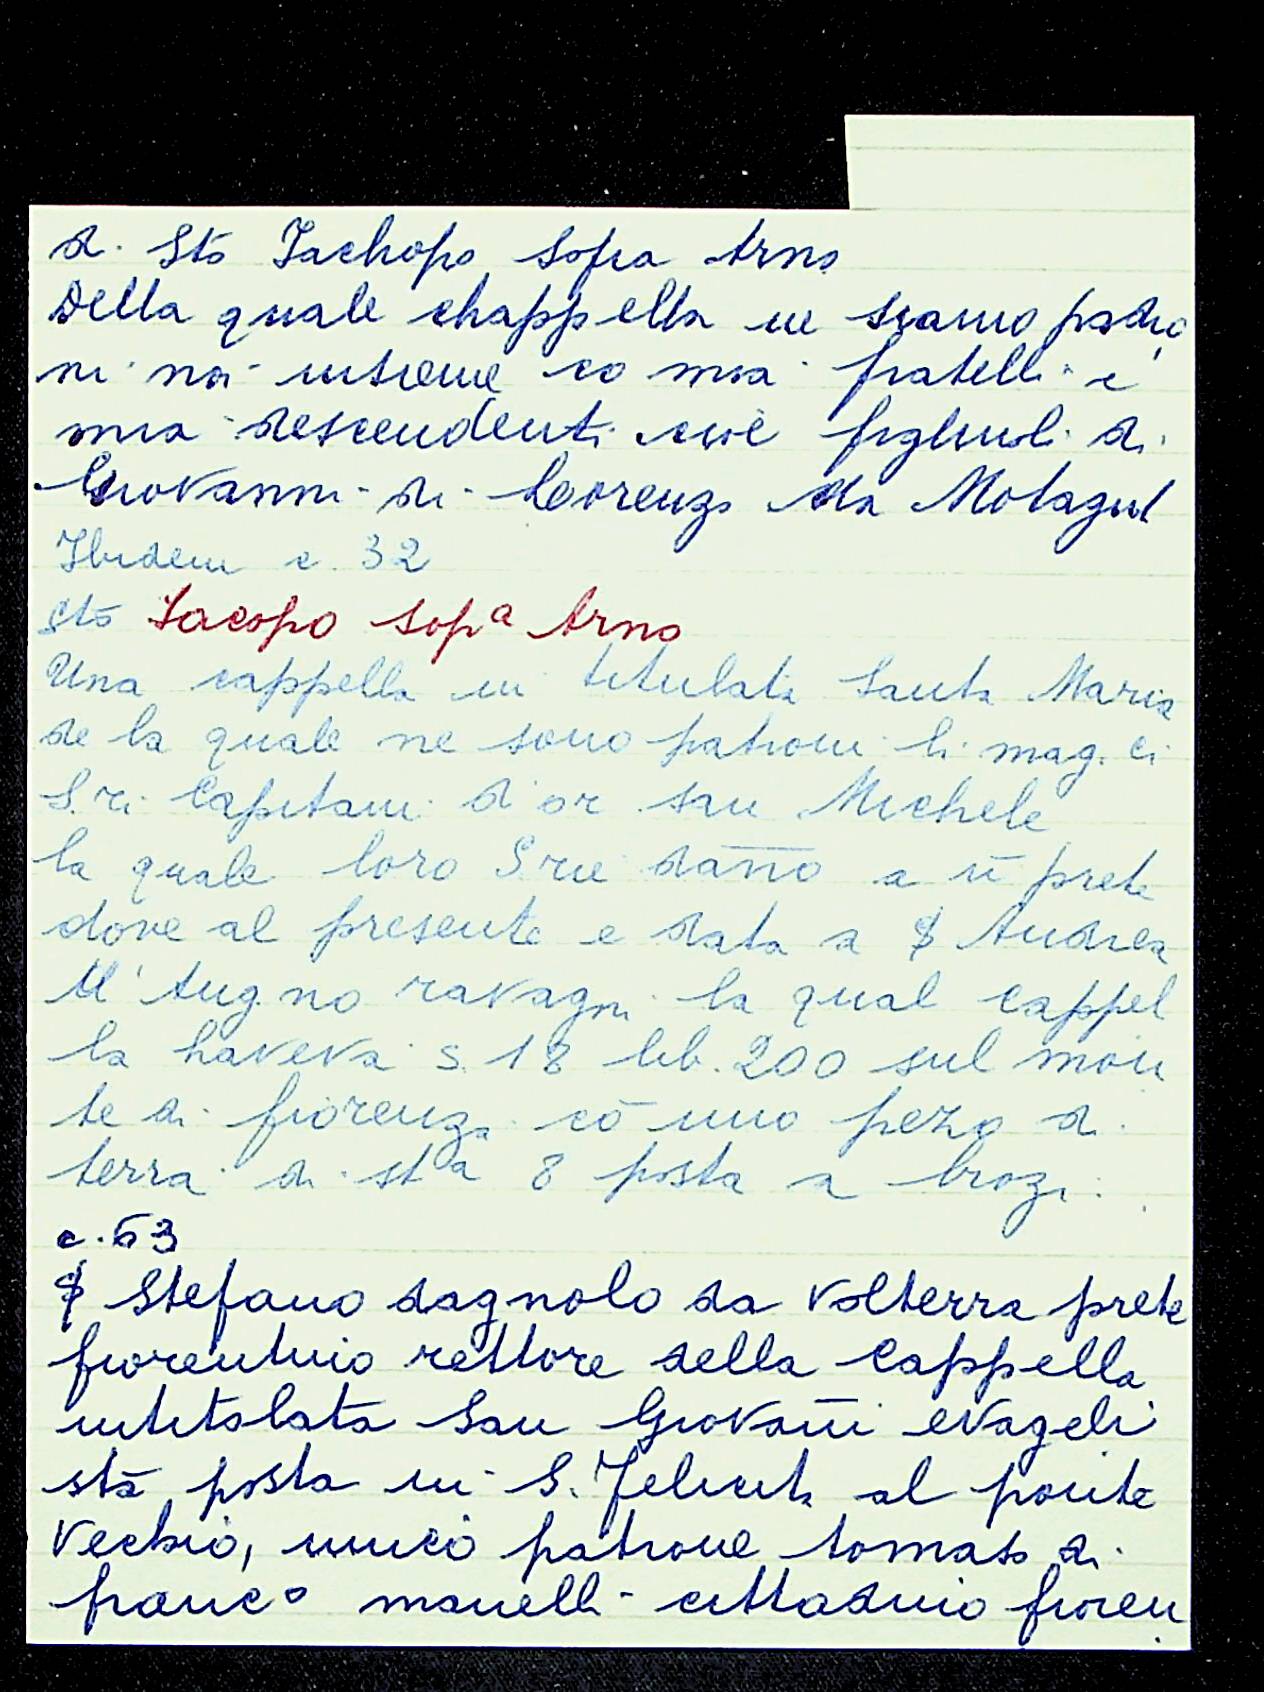 di Sto Iachopo sopra Arno
Della quale chappella ne siamo padro
ni noi insieme co mia fratelli e
mia descendenti cioè figluoli di
Giovanni di Lorenzo da Motaguti
Ibidem c. 32
Sto Iacopo sopa Arno
Una cappella in titulata Santa Maria
de la quale ne sono patroni li mag.ci
S.ri Capitani d'or san Michele
la quale loro S.rie danno a ū prete
dove al presente e data a $ Andrea
M' Aug.no ravagni la qual cappel
la haveva s. 18 lib. 200 sul mon
te di fiorenza cō uno pezo di
terra di sta 8 posta a brozi.
c. 63
$ Stefano dagnolo da Volterra prete
fiorentino rettore della Cappella
intitolata San Giovañi evageli
sta posta in S. Felicita al ponte
Vechio, unico patrone tomaso di
franco manelli cittadino fioren